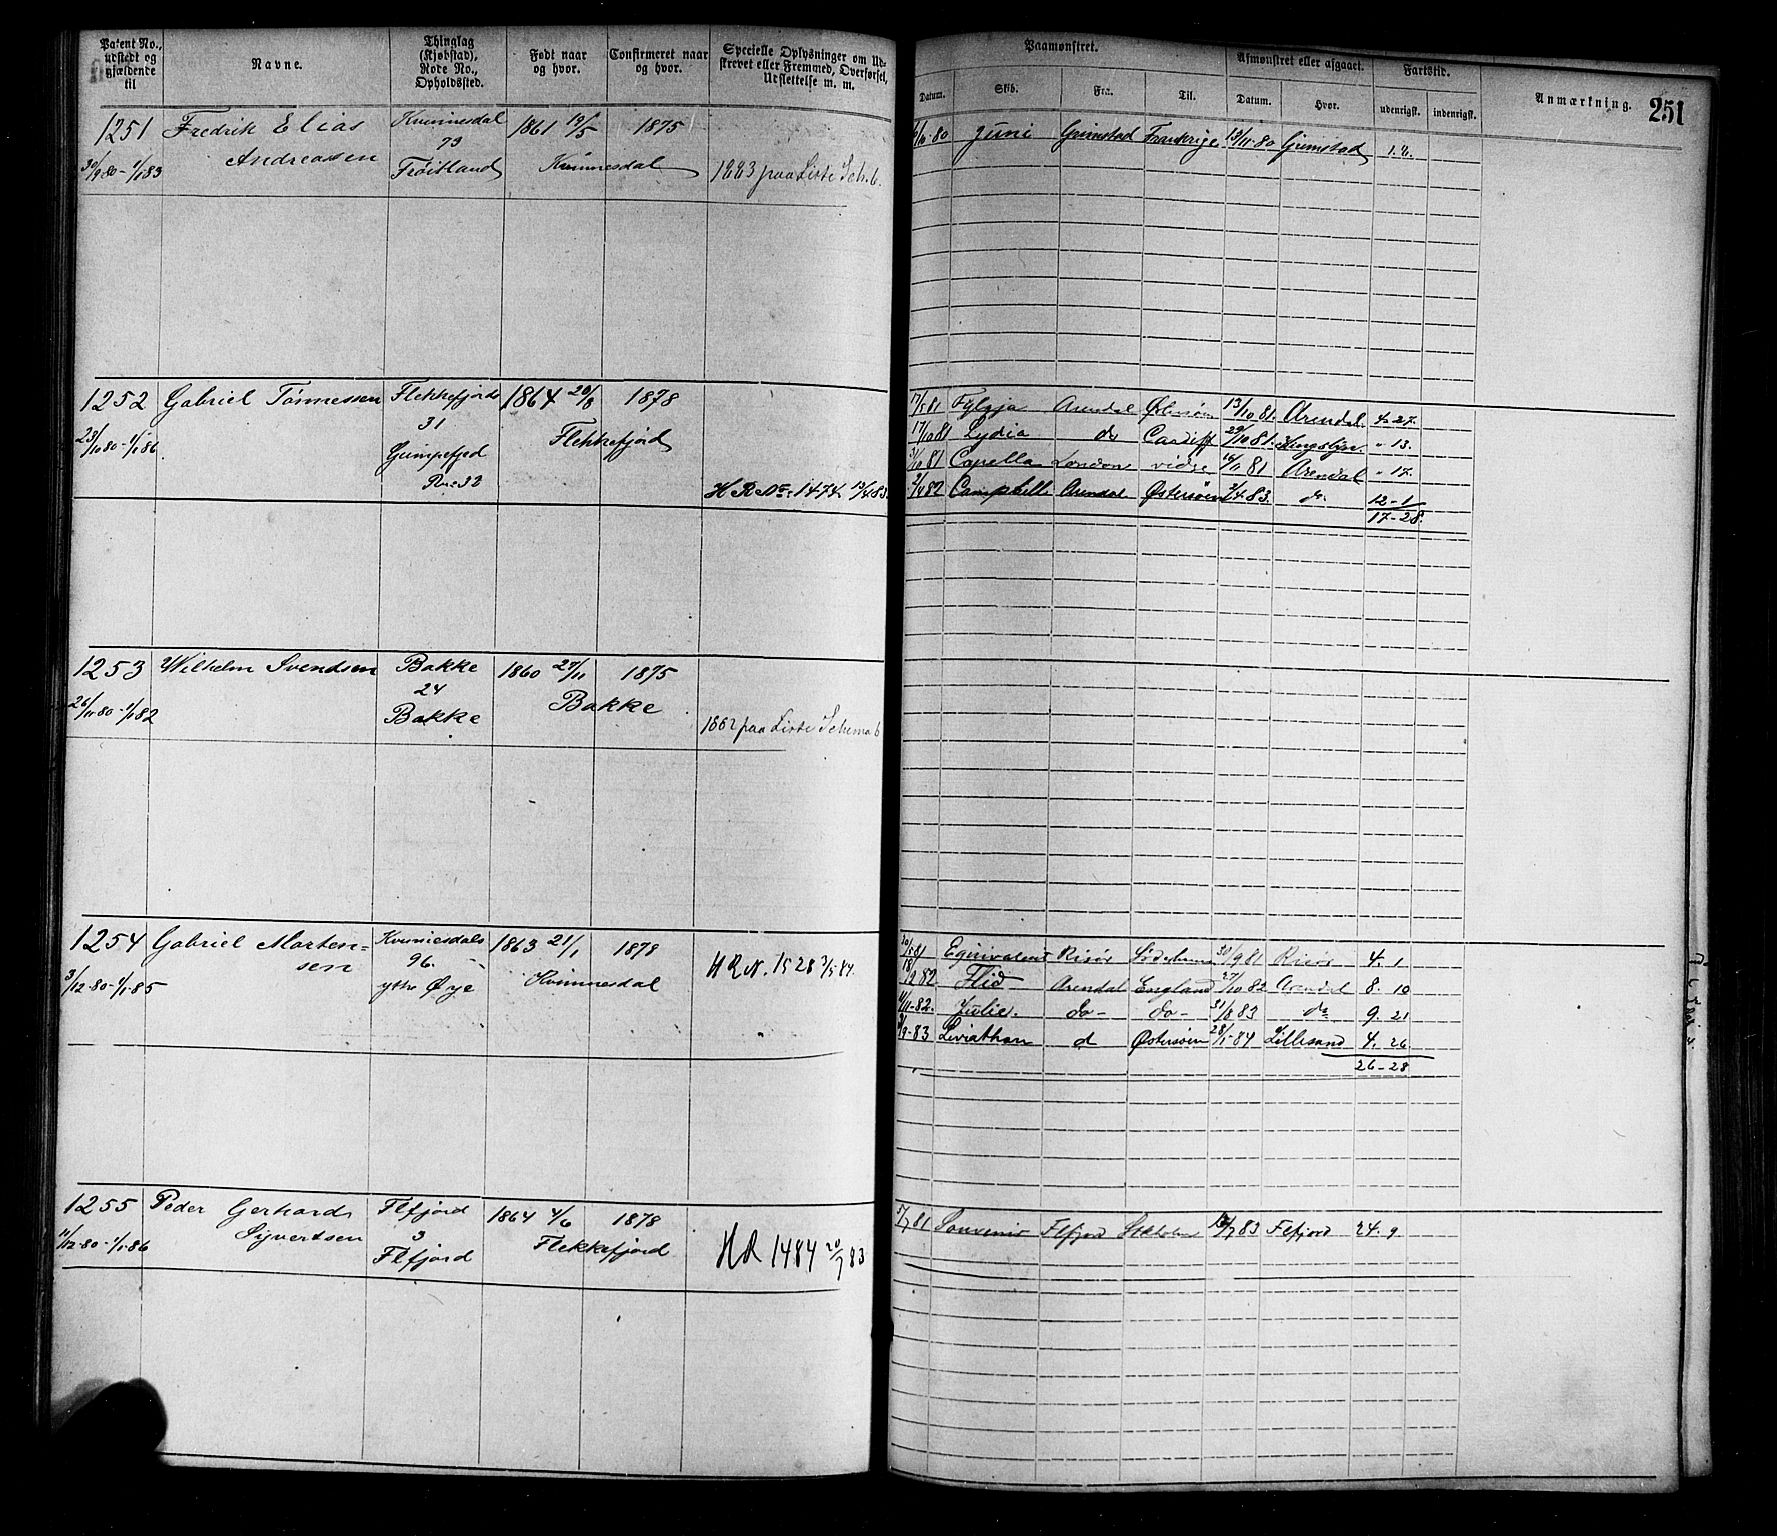 Patent No., udstedt og gjældende til
Navne.
Thinglag (Kjøbstad), Rode No., Opholdssted.
Født naar og hvor.
Confirmeret naar og hvor.
Specielle Oplysninger om Udskrevet eller Fremmed, Overførsel, Udslettelse m. m.
Paamønstret.
Afmønstret eller afgaaet.
Fartstid.
Anmærkning.
251
Datum.
Skib.
Fra.
Til.
Datum.
Hvor.
udenrigsk.
indenrigsk.
1251 Fredrik Elias Kvinnesdal 1861 19/5 1875
Andreassen 73
30/9 80 - 1/1 83 Frøitland Kvinnesdal 1883 paa Liste Sch. b.
/10 80 Juni Grimstad Frankrige 19/11 80 Grimstad 1.
1252 Gabriel Tønnessen Flekkefjords 1864 20/8 1878
23/10 80 - 1/1 86. 31 Flekkefjord
Grimpefjed
R 32 H R No. 1474 12/4 83.
17/5 81 Fylgja Arendal 13/10 81. Arendal 4. 27.
17/10 81 Lydia do Cardiff 29/10 81. " 13.
31/10 81 Capella London vidse 16/11 81 Arendal " 17.
2/4 82 Campbell Arendal Østersøen 2/4 83. do. 12-1
17-28.
1253 Wilhelm Svendsen Bakke 1860 27/11 1875
24
26/11 80 - 1/1 82 Bakke Bakke 1882 paa Liste Schema b
1254 Gabriel Morten= Kvinnesdals 1863 21/1 1878
sen 96. H R N. 1528 3/5 84.
3/12 80 - 1/1 85 ytre Øye Kvinnesdal
30/5 81 Equivalent Risør Söderhamn 30/9 81 Risør 4. 1
18/2 82 Flid Arendal England 27/10 82 Arendal 8. 10
/11 82. Julie. do - do - 31/8 83 do 9. 21
/9 83 Leviathan d Østersøen 28/1 84 Lillesand 4. 26
26-28
1255 Peder Gerhard Flfjord 1864 4/6 1878
Sÿvertsen 3
11/12 80 - 1/1 86 Flfjord Flekkefjord H R 1484 20/7 83
5/7 81 Souvenir Flfjord Stkholm /7 83 Flfjord 24. 9